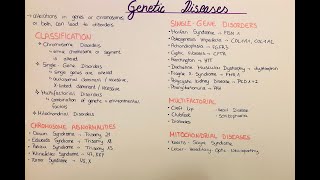 Genetic Diseases
→ Alterations in genes or chromosomes
or both can lead to disorders
CLASSIFICATION
→ Chromosome Disorders
→ entire chromosome or segment
is altered
→ Single-Gene Disorders
→ single genes are altered
→ autosomal dominant/recessive
X-linked dominant/recessive
→ Multifactorial Disorders
→ combination of genetic + environmental
factors
→ Mitochondrial Disorders
CHROMOSOME ABNORMALITIES
→ Down Syndrome - Trisomy 21
→ Edwards Syndrome - Trisomy 18
→ Patau Syndrome - Trisomy 13
→ Klinefelter Syndrome - 47, XXY
→ Turner Syndrome - 45, X
SINGLE-GENE DISORDERS
→ Marfan Syndrome - FBN 1
→ Osteogenesis Imperfecta - COL1A1, COL1A2
→ Achondroplasia - FGFR3
→ Cystic Fibrosis - CFTR
→ Huntington's - HTT
→ Duchenne Muscular Dystrophy - dystrophin
→ Fragile X Syndrome -
→ Polycystic Kidney Disease - PKD 1+2
→ Phenylketonuria - PAH
MULTIFACTORIAL
→ Cleft Lip
→ Heart Disease
→ Clubfoot
→ Schizophrenia
→ Diabetes
MITOCHONDRIAL DISEASES
→ Kearns - Sayre Syndrome
→ Leber Hereditary Optic Neuropathy